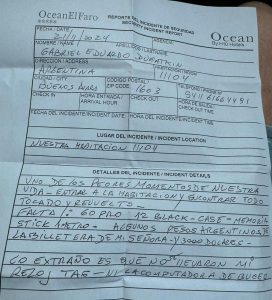 OceanElFaro
REPORTE DEL INCIDENTE DE SEGURIDAD
SECURITY INCIDENT REPORT
Ocean
By H10 Hotels
FECHA / DATE
21/11/2024
NOMBRE / NAME
APELLIDOS / LASTNAME
GABRIEL EDUARDO
DIRECCION / ADDRESS
HABITACION / ROOM
ARGENTINA
11104
CIUDAD - CITY
CODIGO POSTAL / ZIPCODE
TELEFONO / PHONE
BUENOS AIRES
1603
CHECK IN
HORA ENTRADA / ARRIVAL HOUR
CHECK OUT
HORA DE SALIDA / CHECK OUT TIME
FECHA DEL INCIDENTE / DATE INCIDENT
HORA DEL INCIDENTE / INCIDENT TIME
LUGAR DEL INCIDENTE / INCIDENT LOCATION
NUESTRA HABITACION 11104
DETALLES DEL INCIDENTE / INCIDENT DETAILS
UNO DE LOS PEORES MOMENTOS DE NUESTRA
VIDA - ENTRAR A LA HABITACION Y ENCONTRAR TODO
TOCADO Y REVUELTO.
FALTA: GO PRO 12 BLACK - CASE - MEMORIA
STICK - ALGUNOS PESOS ARGENTINOS DE
LA BILLETERA DE MI SEÑORA - Y 3000 DOLARES -
LO EXTRAÑO ES QUE NO SE LLEVARON MI
RELOJ TAG - NI LA COMPUTADORA DE BUCEO